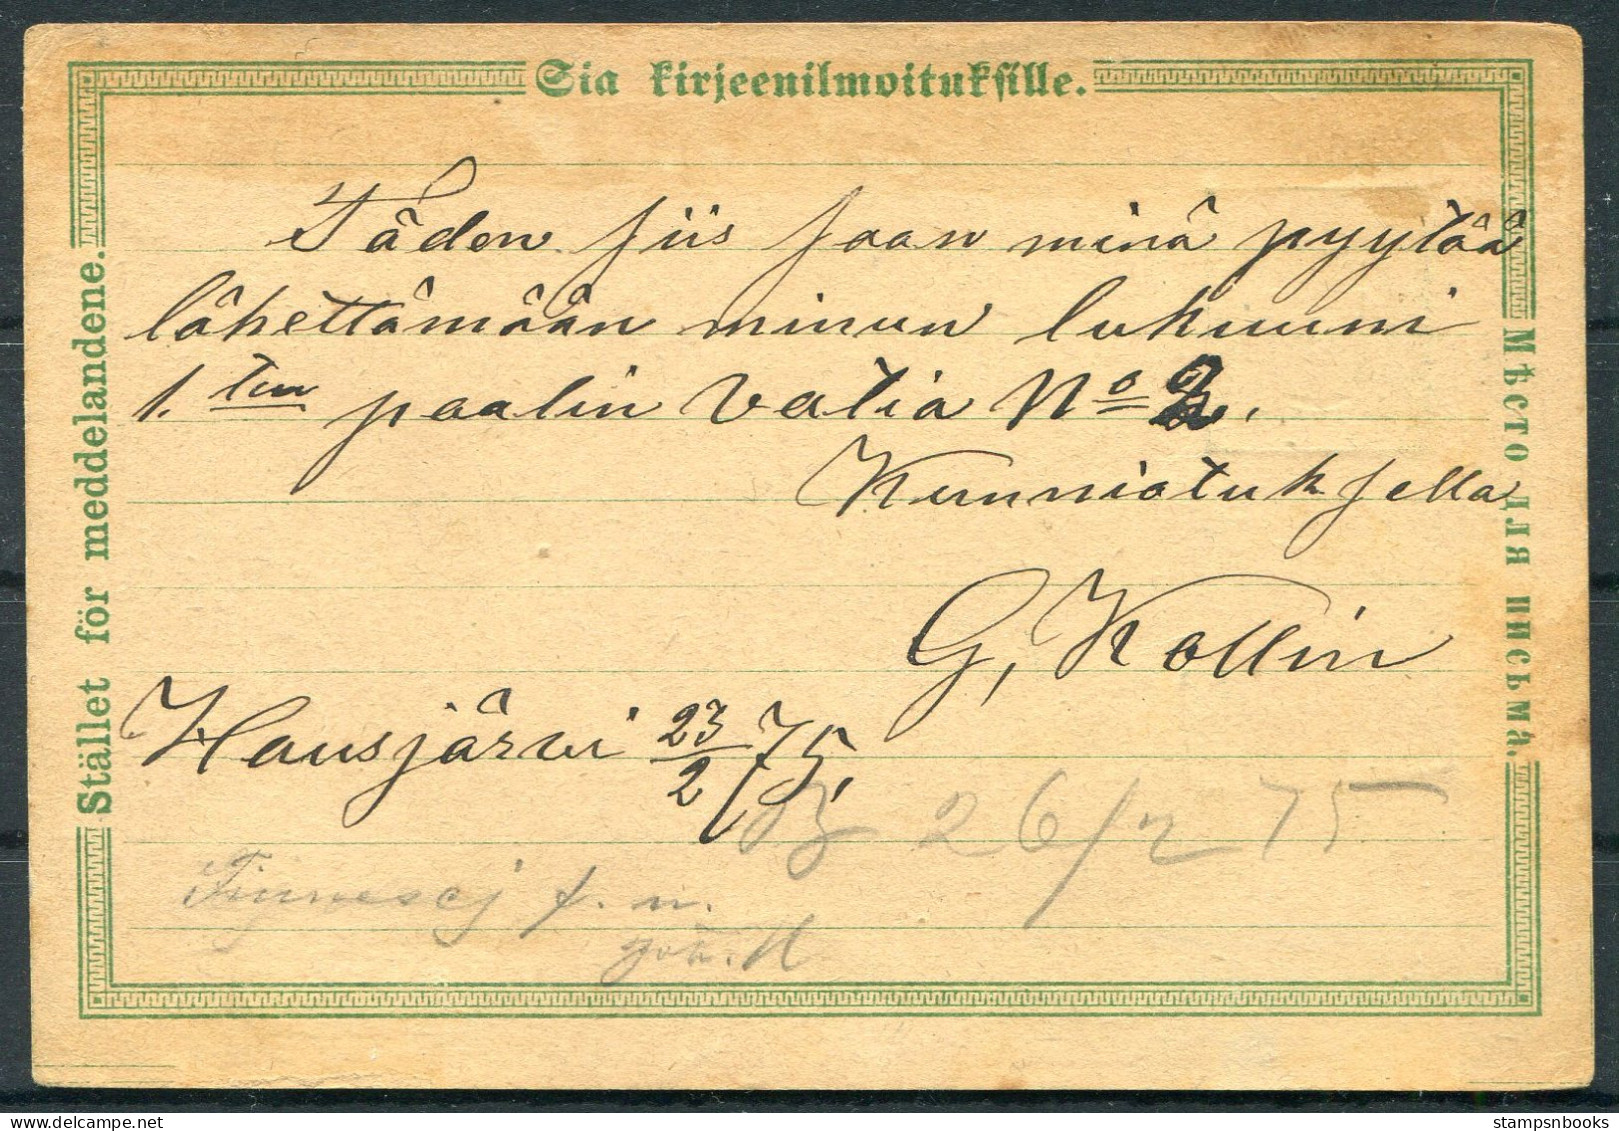 Sia kirjeenilmoituksille.
Stället för meddelandene.
Мѣсто для письма.
Täden siis saan minä pyytää
lähettämään minun lukuuni
1. ten paalin Vatia No 2.
Kunniatuksella
G, Kollin
Hausjärvi 23/2 75,
26/2 75
f. n.
stampsnbooks